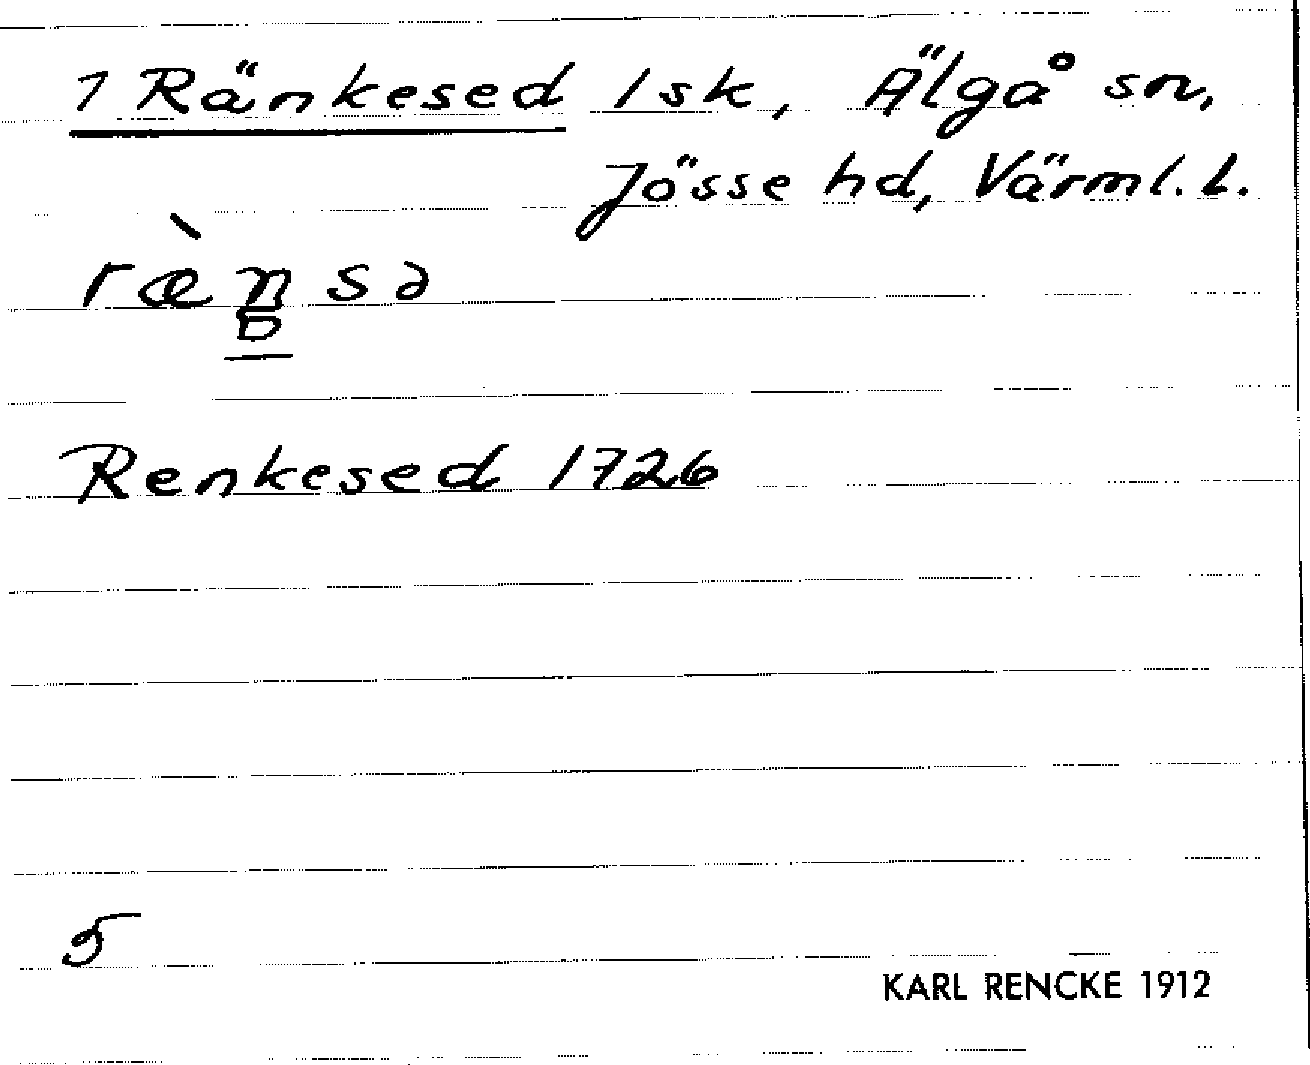 1 Ränkesed 1sk, Älgå sn,
Jösse hd, Värml. l.
ræ̀nsə
Renkesed 1726
5
KARL RENCKE 1912